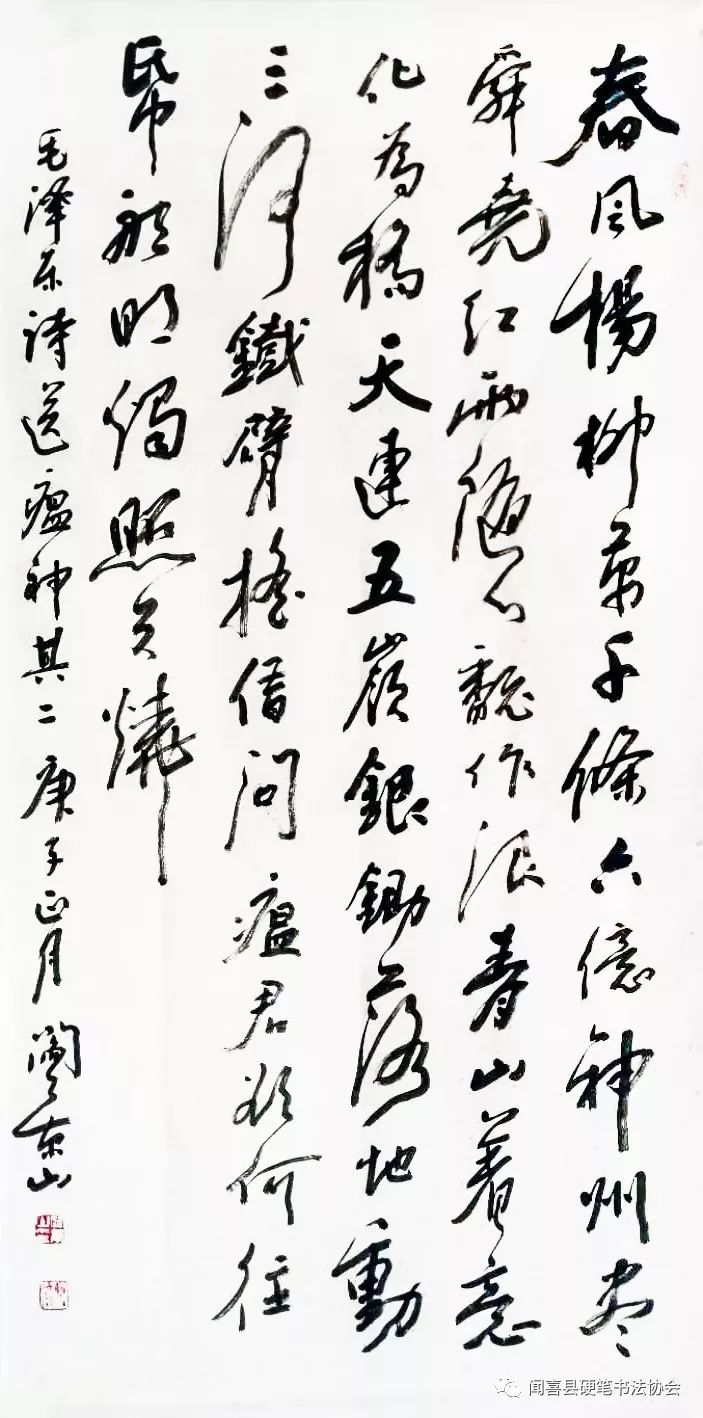 春风楊柳萬千條六億神州尽
舜堯红雨随心翻作浪青山着意
化為橋天連五嶺銀鋤落地動
三河鐵臂摇借问瘟君欲何往
紙船明烛照天燒
毛泽东诗送瘟神其二 庚子正月 阎东山
闻喜县硬笔书法协会